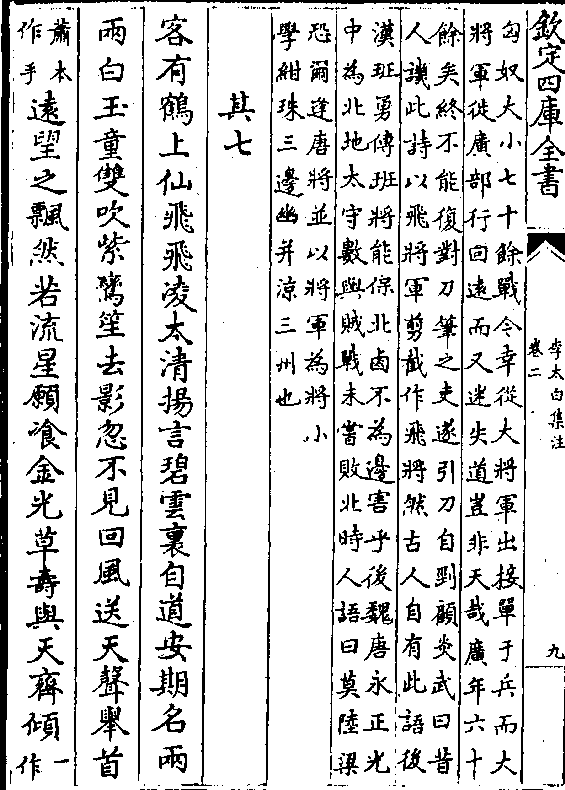 欽定四庫全書
李太白集注
卷二
九
匈奴大小七十餘戰今幸從大將軍出接單于兵而大
將軍徙廣部行回遠而又迷失道豈非天哉廣年六十
餘矣終不能復對刀筆之吏遂引刀自剄顧炎武曰昔
人譏此詩以飛將軍剪截作飛將然古人自有此語後
漢班勇傳班將能保北鹵不為邊害乎後魏唐永正光
中為北地太守數與賊戰未嘗敗北時人語曰莫陸梁
恐爾逢唐將並以將軍為將小
學紺珠三邊幽并涼三州也
其七
客有鶴上仙飛飛凌太清揚言碧雲裏自道安期名兩
兩白玉童雙吹紫鸞笙去影忽不見回風送天聲舉首
蕭本作手遠望之飄然若流星願飡金光草壽與天齊傾一作